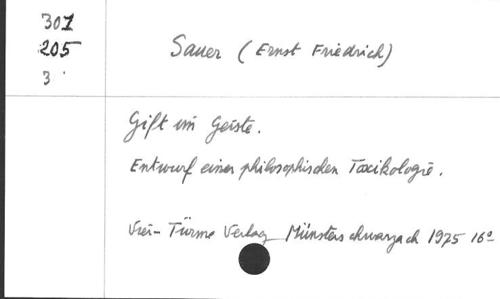 301
205
3
Sauer (Ernst Friedrich)
Gift im Geiste.
Entwurf einer philosophischen Toxikologie.
Vier-Türme Verlag Münsterschwarzach 1975 16º